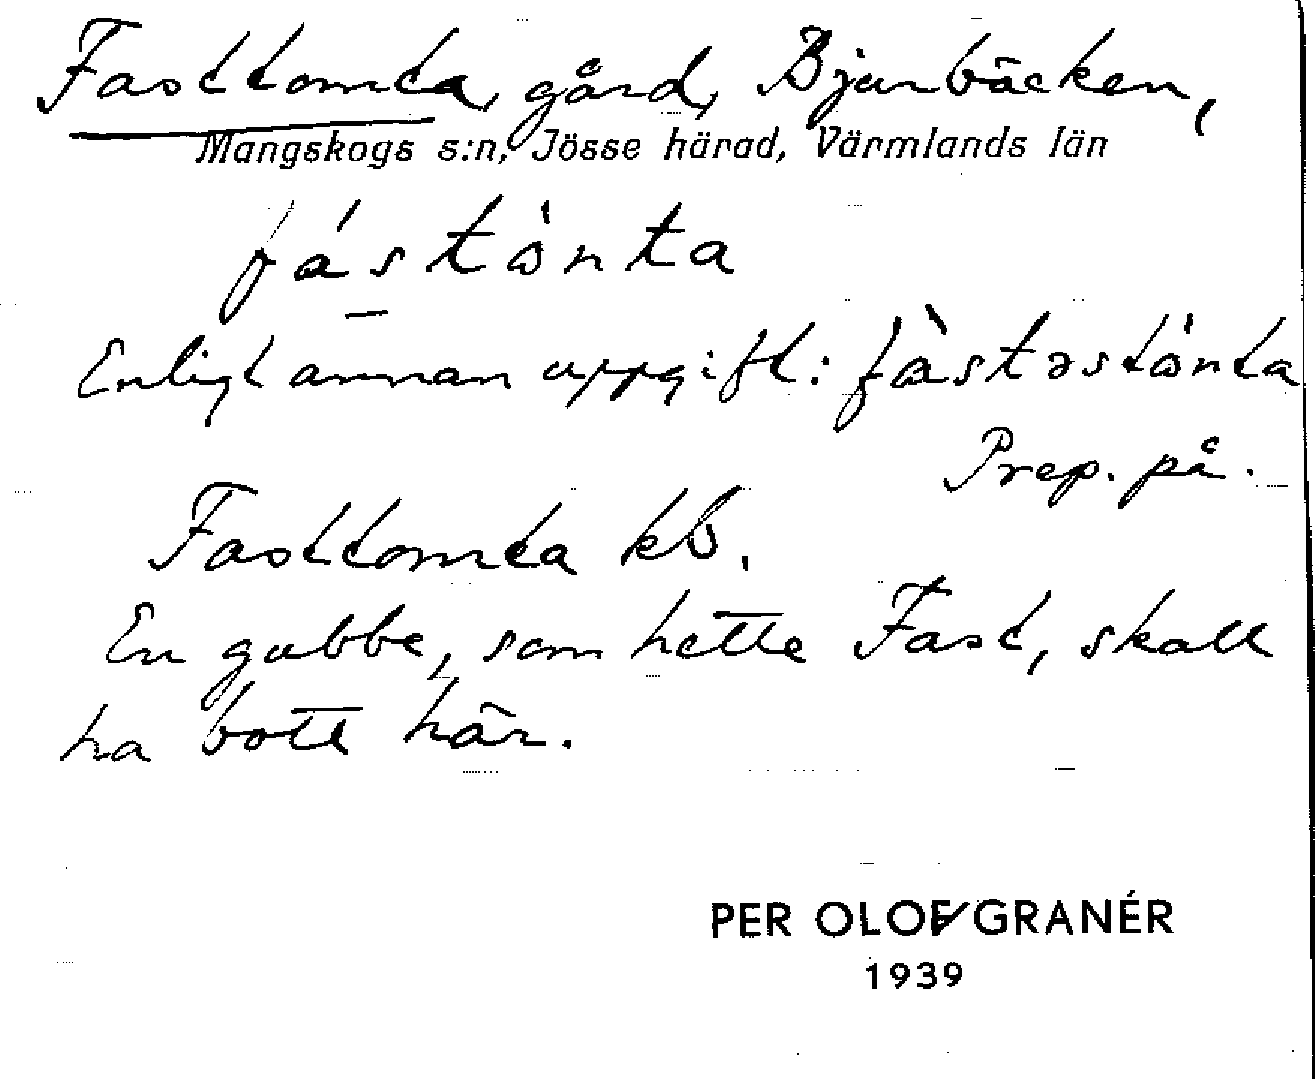 Fasttomta, gård, Bjurbäcken,
Mangskogs s:n, Jösse härad, Värmlands län
fástònta
Enligt annan uppgift: fàstəstònta
Prep. på.
Fasttomta kb.
En gubbe, som hette Fast, skall
ha bott här.
PER OLOF GRANÉR
1939